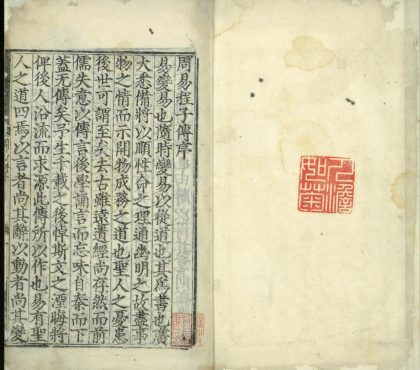 人澹
如菊
周易程子傳序
易變易也隨時變易以從道也其爲書也廣
大悉備將以順性命之理通幽明之故盡事
物之情而示開物成務之道也聖人之憂患
後世可謂至矣去古雖遠遺經尚存然而前
儒失意以傳言後學誦言而忘味自秦而下
蓋无傳矣予生千載之後悼斯文之湮晦將
俾後人沿流而求源此傳所以作也易有聖
人之道四焉以言者尚其辭以動者尚其變